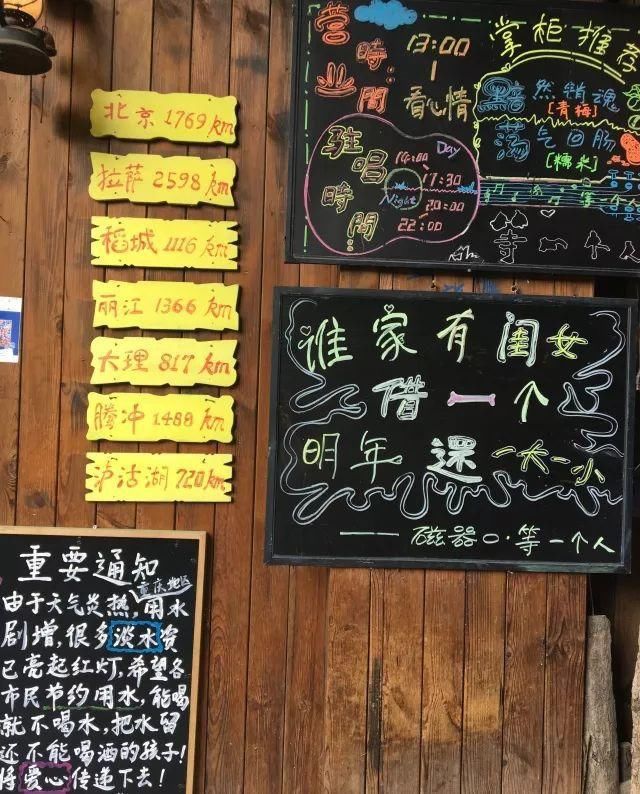 北京 1769 km
拉萨 2598 km
稻城 1116 km
丽江 1366 km
大理 817 km
腾冲 1488 km
泸沽湖 720 km
營業
時間
13:00
|
看心情
駐唱
時間
Day
14:00
17:30
Night
20:00
22:00
掌柜推荐
黯然销魂
[青梅]
荡气回肠
[糯米]
等一个人
谁家有闺女
借一个
明年還一大一小
——磁器口·等一个人
重要通知
重庆地区
由于天气炎热,用水
剧增,很多淡水资
已亮起红灯,希望各
市民节约用水,能喝
就不喝水,把水留
还不能喝酒的孩子!
将爱心传递下去!